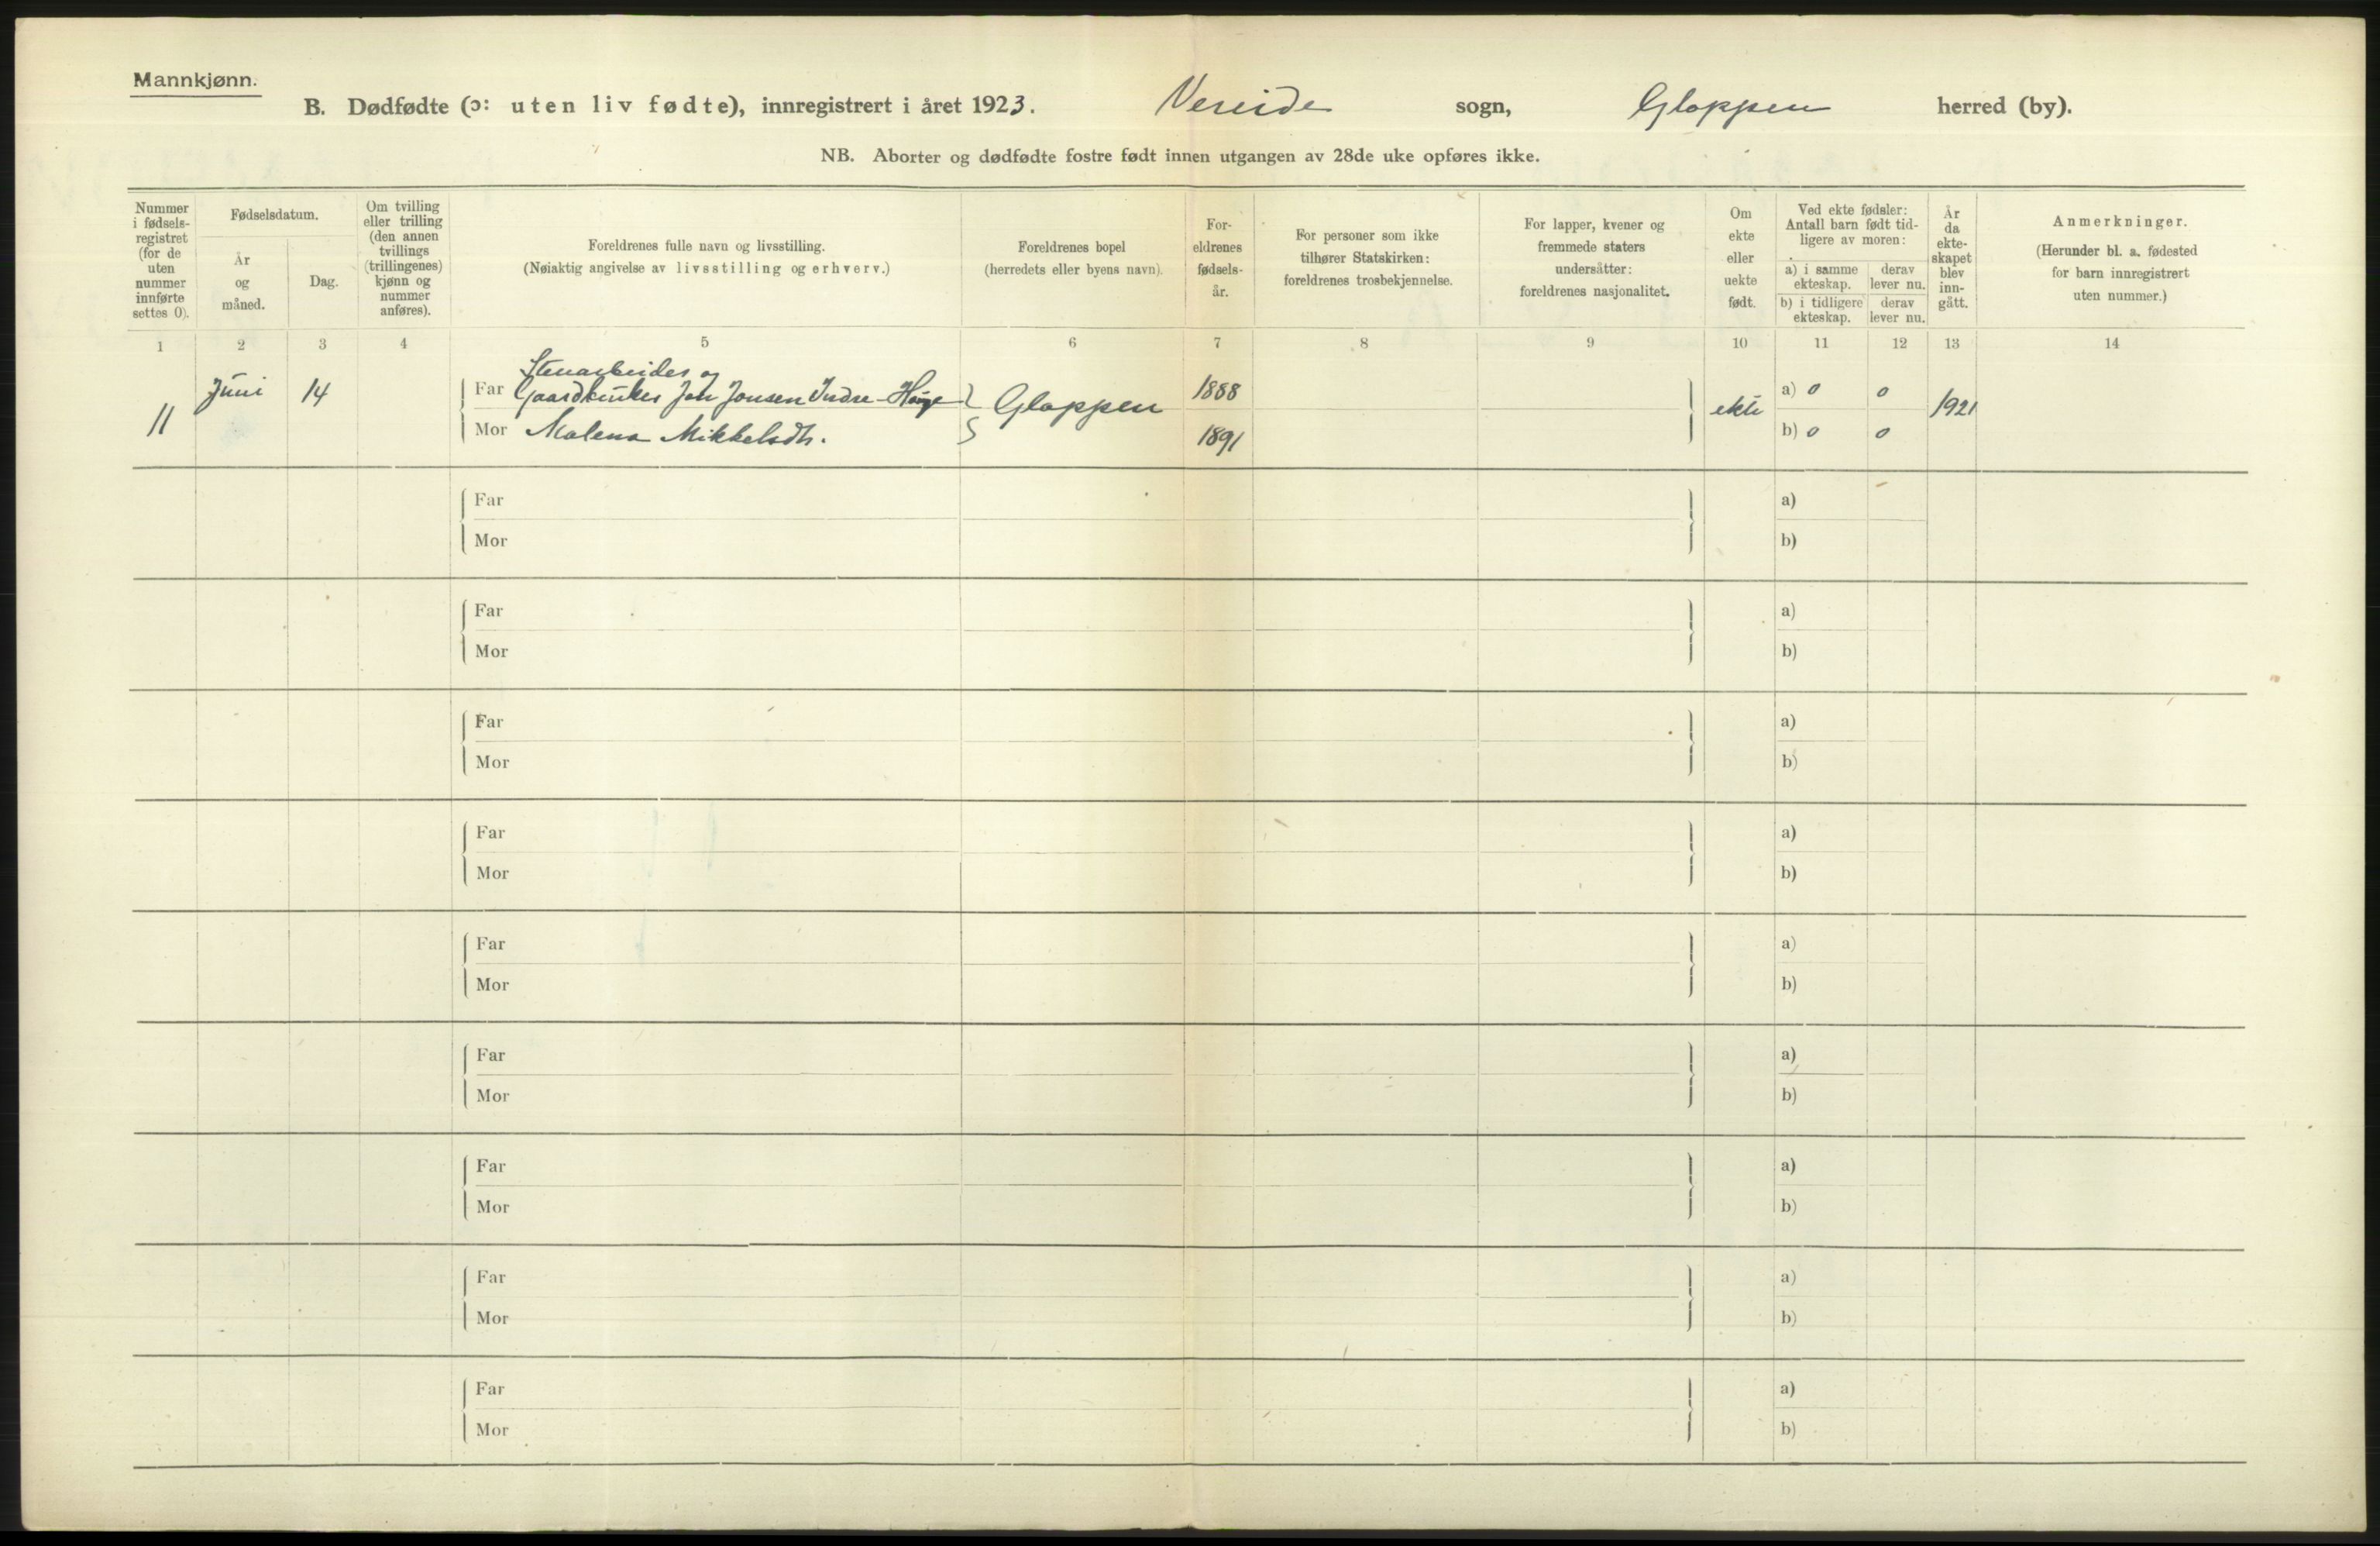 Mannkjønn.
B. Dødfødte (ɔ: uten liv fødte), innregistrert i året 1923. Vereide sogn, Gloppen herred (by).
NB. Aborter og dødfødte fostre født innen utgangen av 28de uke opføres ikke.
Nummer i fødsels-registret (for de uten nummer innførte settes 0).
Fødselsdatum.
År og måned.
Dag.
Om tvilling eller trilling (den annen tvillings (trillingenes) kjønn og nummer anføres).
Foreldrenes fulle navn og livsstilling.
(Nøiaktig angivelse av livsstilling og erhverv.)
Foreldrenes bopel
(herredets eller byens navn).
For-eldrenes fødsels-år.
For personer som ikke tilhører Statskirken: foreldrenes trosbekjennelse.
For lapper, kvener og fremmede staters undersåtter: foreldrenes nasjonalitet.
Om ekte eller uekte født.
Ved ekte fødsler: Antall barn født tid-ligere av moren:
a) i samme ekteskap.
derav lever nu.
b) i tidligere ekteskap.
derav lever nu.
År da ekte-skapet blev inn-gått.
Anmerkninger.
(Herunder bl. a. fødested for barn innregistrert uten nummer.)
1 2 3 4 5 6 7 8 9 10 11 12 13 14
Stenarbeider og
Juni 14 Far Gaardbruker Jon Jonsen Indre-Hauge 1888 a) 0 0
11 Gloppen ekte 1921
Mor Malena Mikkelsdtr. 1891 b) 0 0
Far a)
Mor b)
Far a)
Mor b)
Far a)
Mor b)
Far a)
Mor b)
Far a)
Mor b)
Far a)
Mor b)
Far a)
Mor b)
Far a)
Mor b)
Far a)
Mor b)